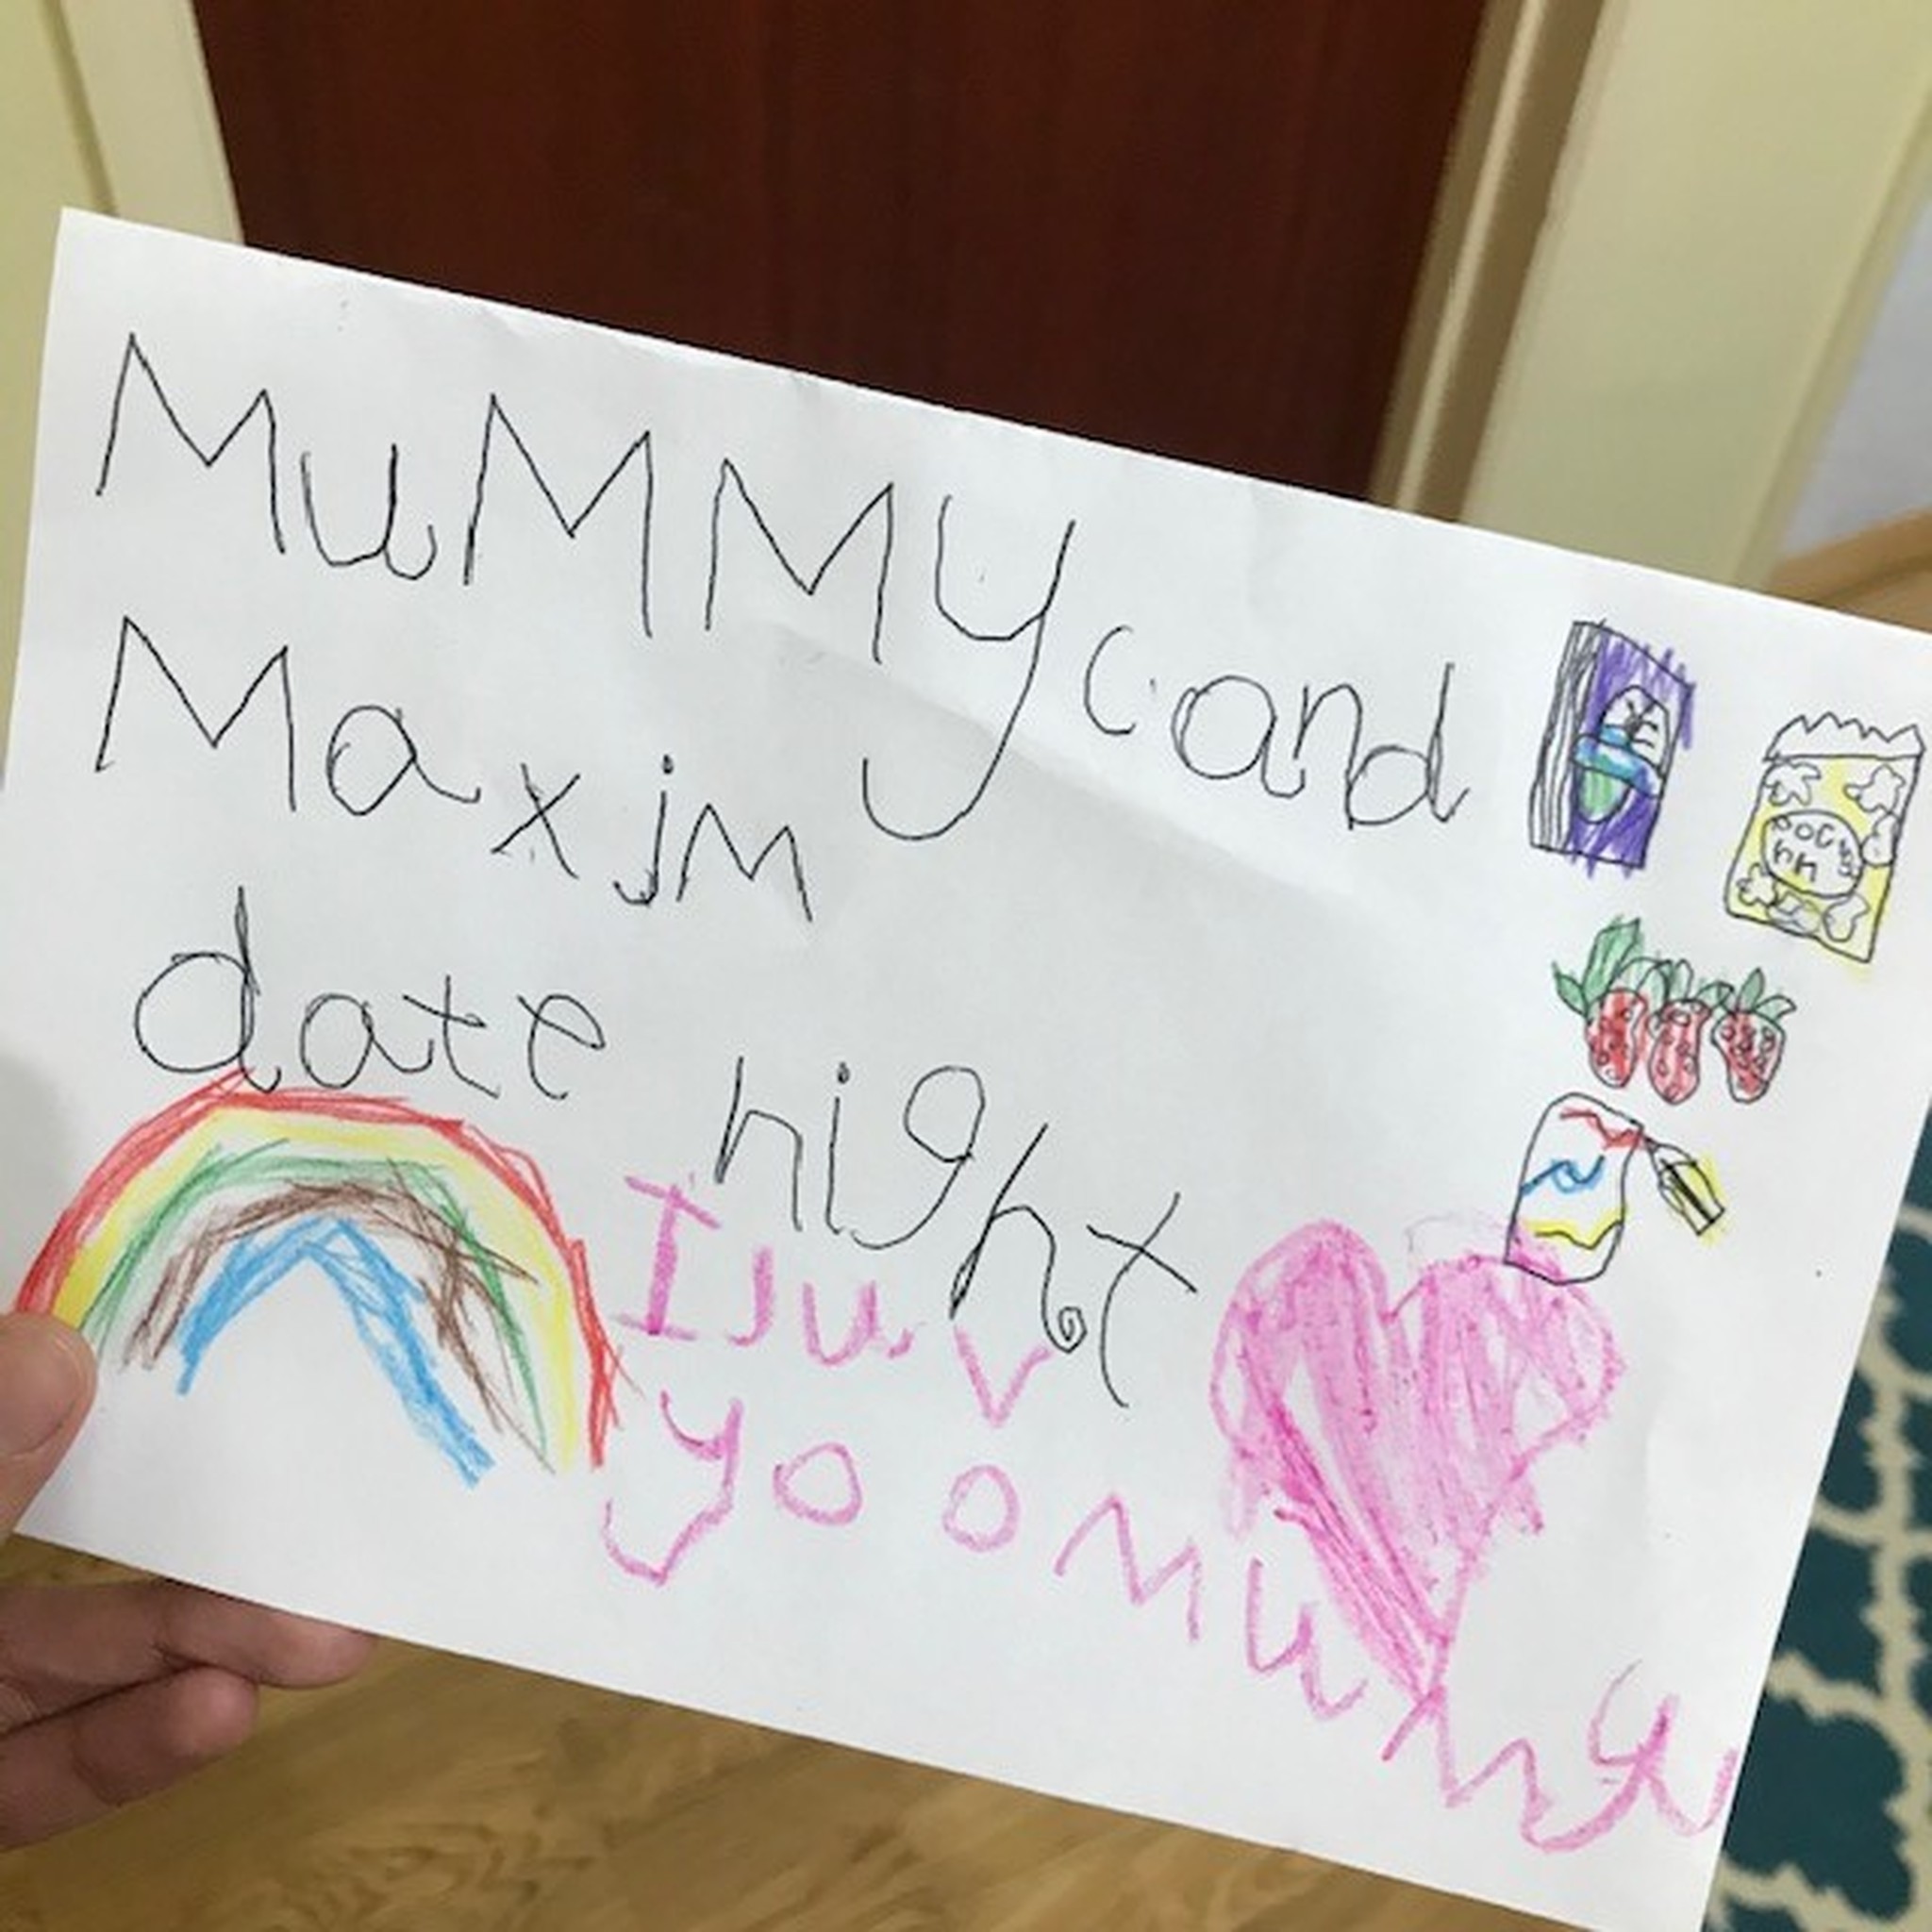 MuMMy and
Maxim
date night
I luv
yoo mumy